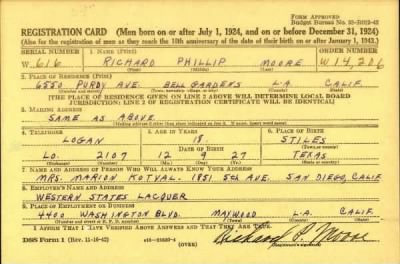 FORM APPROVED
REGISTRATION CARD (Men born on or after July 1, 1924, and on or before December 31, 1924)
(Also for the registration of men as they reach the 18th anniversary of the date of their birth on or after January 1, 1943.)
W 616 RICHARD PHILLIP MOORE W 14,206
2. PLACE OF RESIDENCE (Print)
6550 PURDY AVE. BELL GARDENS L.A. CALIF.
[THE PLACE OF RESIDENCE GIVEN ON LINE 2 ABOVE WILL DETERMINE LOCAL BOARD
JURISDICTION; LINE 2 OF REGISTRATION CERTIFICATE WILL BE IDENTICAL]
3. MAILING ADDRESS
SAME AS ABOVE
4. TELEPHONE
LOGAN 18 STILES
DATE OF BIRTH
6. PLACE OF BIRTH
LO. 2107 12 9 27 TEXAS
7. NAME AND ADDRESS OF PERSON WHO WILL ALWAYS KNOW YOUR ADDRESS
MRS. MARION KOTVAL. 1851 5th AVE. SAN DIEGO, CALIF
8. EMPLOYER'S NAME AND ADDRESS
WESTERN STATES LACQUER
9. PLACE OF EMPLOYMENT OR BUSINESS
4400 WASHINGTON BLVD. MAYWOOD L.A. CALIF.
I AFFIRM THAT I HAVE VERIFIED ABOVE ANSWERS AND THAT THEY ARE TRUE.
DSS Form 1 (Rev. 11-16-42) (OVER) Richard P. Moore